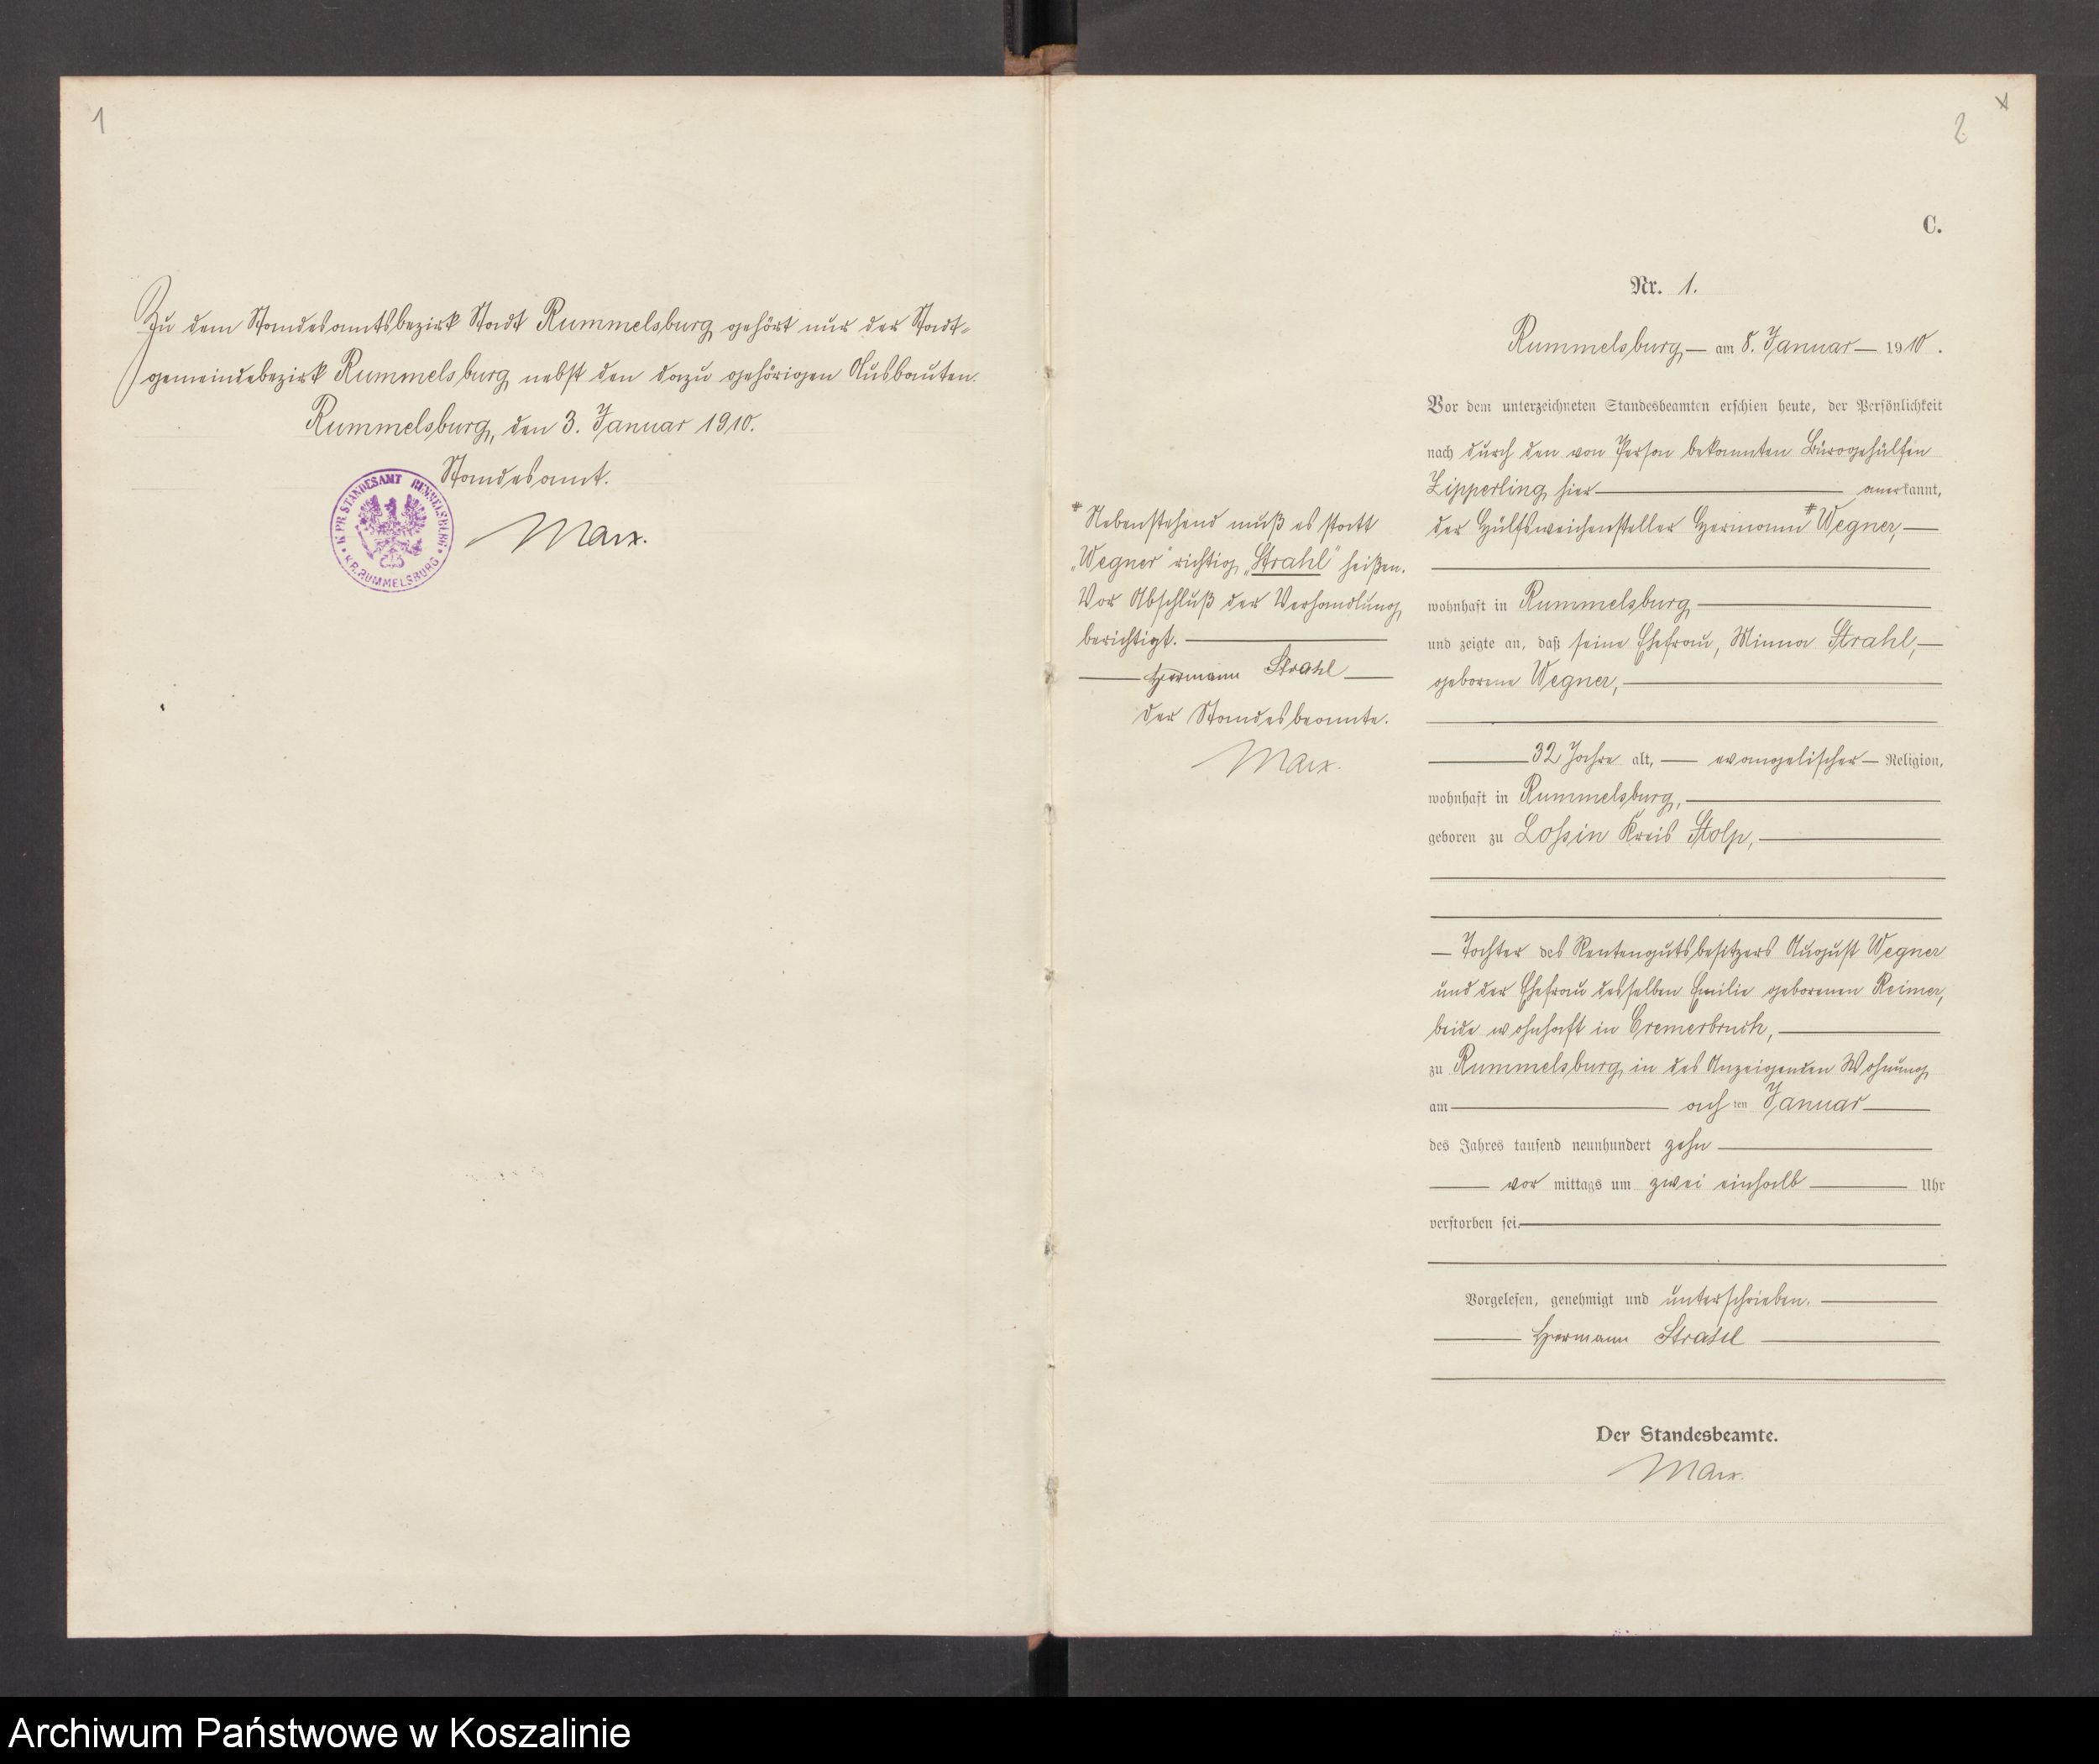 1
Zu dem Standesamtsbezirk Stadt Rummelsburg gehört nur der Stadt-
gemeindebezirk Rummelsburg nebst den dazu gehörigen Ausbauten.
Rummelsburg, den 3. Januar 1910.
Standesamt.
Marx.
K. PR. STANDESAMT RUMMELSBURG
KR. RUMMELSBURG
2
C.
Nr. 1.
Rummelsburg am 8. Januar 1910.
Vor dem unterzeichneten Standesbeamten erschien heute, der Persönlichkeit
nach durch den von Person bekannten Bürogehülfen
Zipperling hier anerkannt,
der Hülfsweichensteller Hermann Wegner,
wohnhaft in Rummelsburg
und zeigte an, daß seine Ehefrau, Minna Strahl,
geborene Wegner,
32 Jahre alt, evangelischer Religion,
wohnhaft in Rummelsburg,
geboren zu Lossin Kreis Stolp,
Tochter des Rentengutsbesitzers August Wegner
und der Ehefrau desselben Emilie geborenen Reimer,
beide wohnhaft in Cremerbruch,
zu Rummelsburg in des Anzeigenden Wohnung
am achten Januar
des Jahres tausend neunhundert zehn
vor mittags um zwei einhalb Uhr
verstorben sei.
Vorgelesen, genehmigt und unterschrieben.
Hermann Strahl
Der Standesbeamte.
Marx.
Nebenstehend muß es statt
„Wegner" richtig „Strahl" heißen.
Vor Abschluß der Verhandlung
berichtigt.
Hermann Strahl
Der Standesbeamte.
Marx.
Archiwum Państwowe w Koszalinie